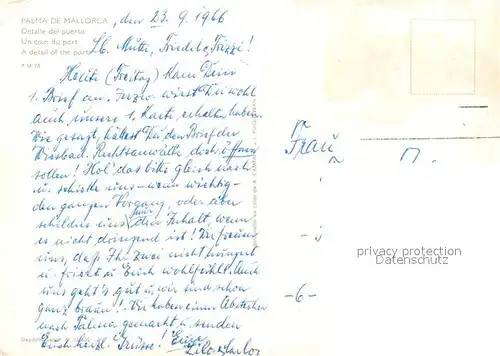 PALMA DE MALLORCA, den 23.9.1966
Detalle del puerto
Un coin du port
A detail of the port
P.M. 78
Lb. Mutti, Friedel, Fritzi!
Heute (Freitag) kam Dein
1. Brief an. Inzw. wirst Du wohl
auch unsere 1. Karte erhalten haben.
Wie gesagt, hättest Du den Brief der
Wiesbad. Rechtsanwälte doch öffnen
sollen! Hol' das bitte gleich nach
u. schicke uns - wenn wichtig -
den ganzen Vorgang, oder aber
schildre uns nur den Inhalt, wenn
es nicht dringend ist! Wir freuen
uns, daß Ihr zwei nicht hungert
u. friert u. Euch wohlfühlt. Auch
uns geht's gut u. wir sind schon
ganz braun! Wir haben einen Abstecher
nach Palma gemacht u. senden
Euch herzl. Grüsse! Eure
Lilo + Karlo
Frau
M.
-6-
privacy protection
Datenschutz